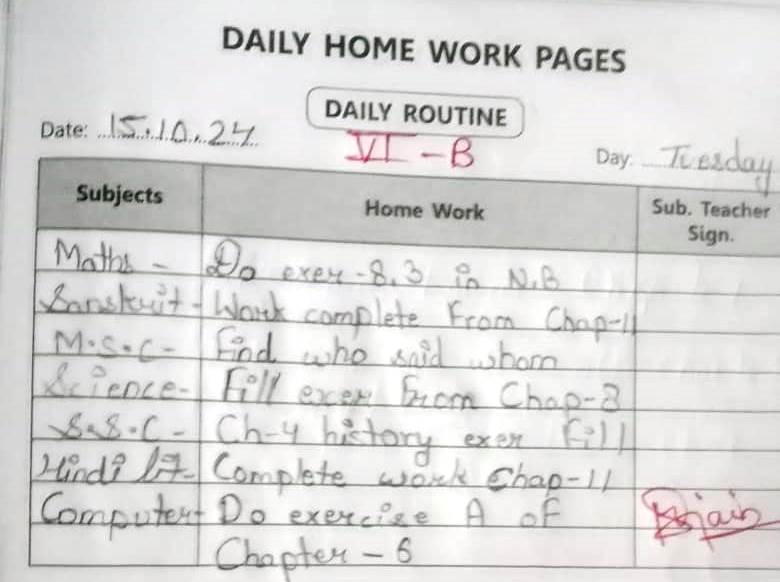 DAILY HOME WORK PAGES
DAILY ROUTINE
Date: 15.10.24
VI-B
Day: Tuesday
Subjects Home Work Sub. Teacher Sign.
Maths - Do exer-8.3 in N.B
Sanskrit - Work complete From Chap-11
M.S.C - Find who said whom
Science - Fill exer From Chap-8
S.S.C - Ch-4 history exer Fill
Hindi lit - Complete work Chap-11
Computer - Do exercise A of
Chapter - 6